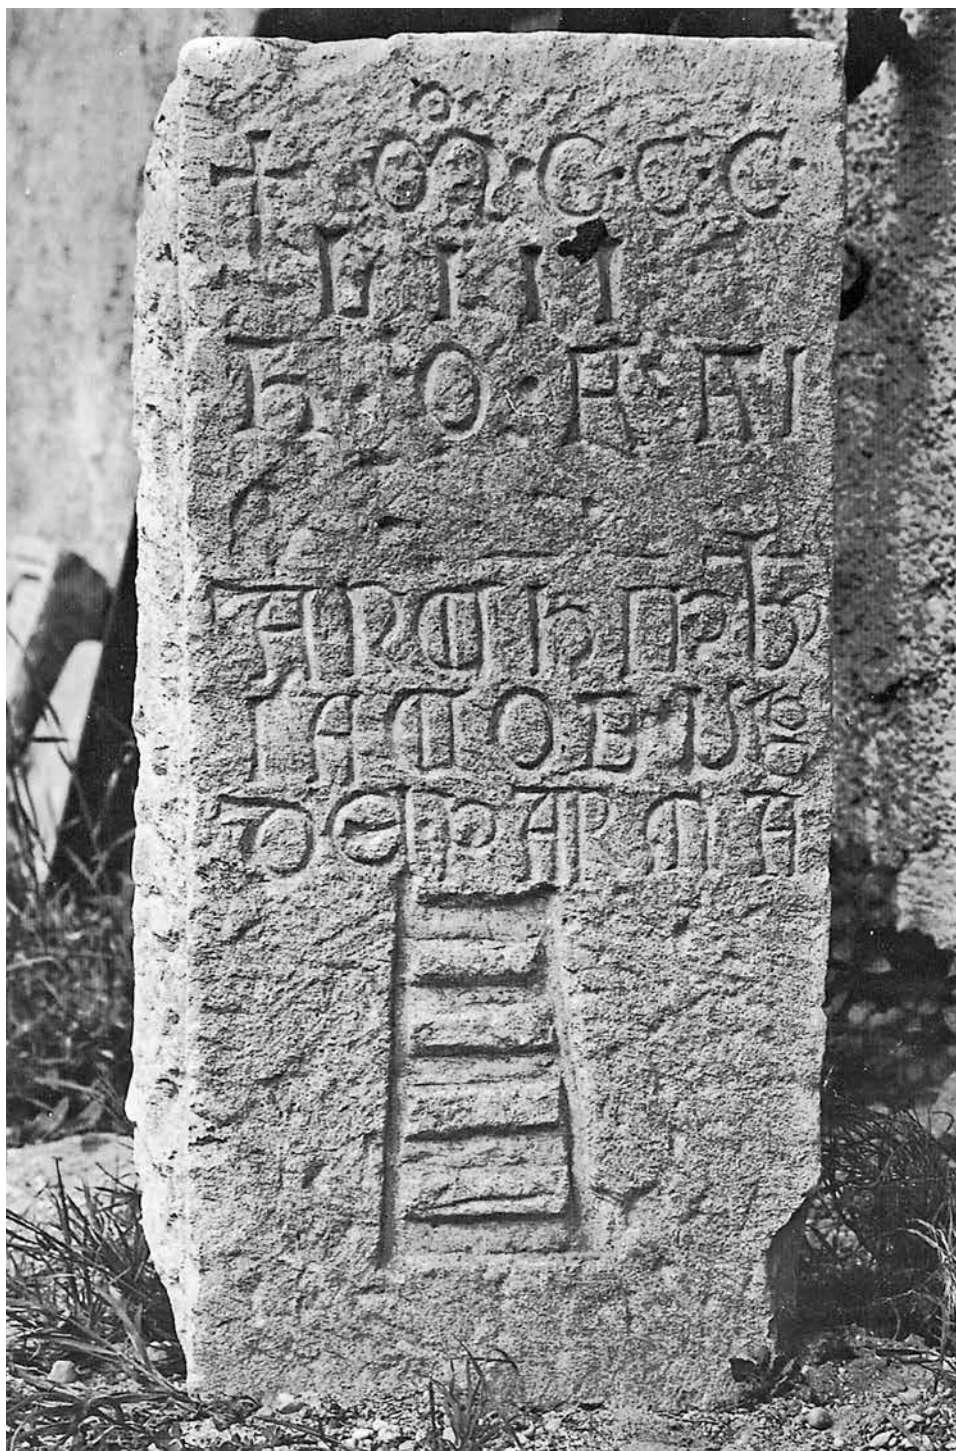 + M̊·C·C·C·
LIII
h·O·A·AI

ARChIPB
IACOBUS
DEPARCIA